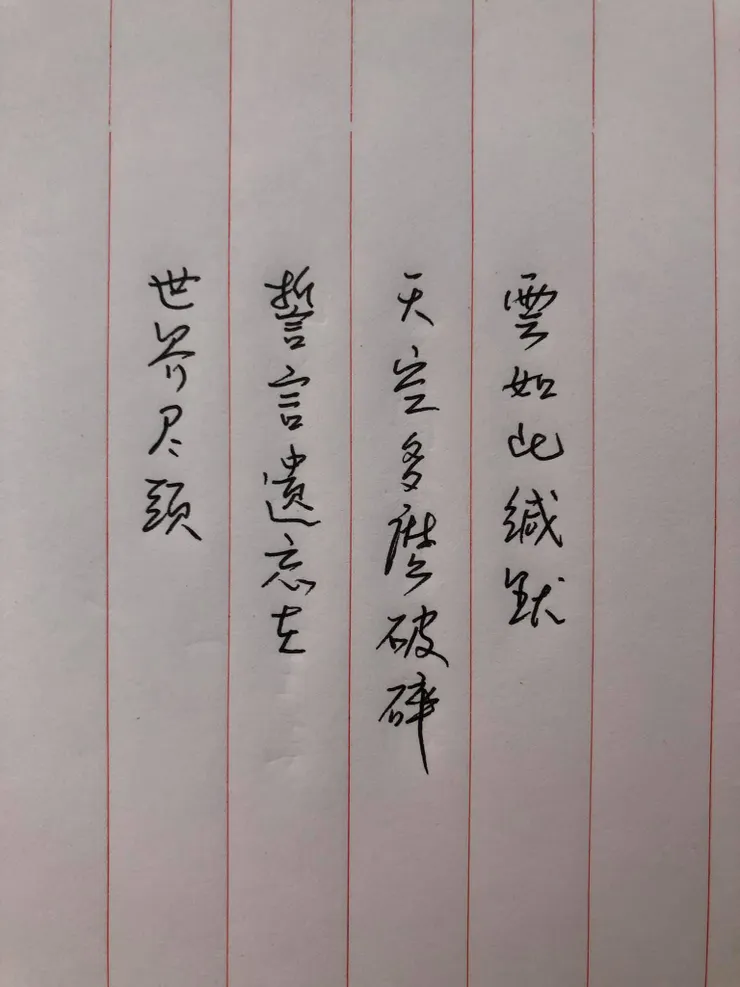 雲如此缄默
天空多麼破碎
誓言遺忘在
世界尽頭